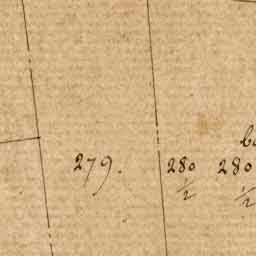 279.
280 1/2
280 1/2